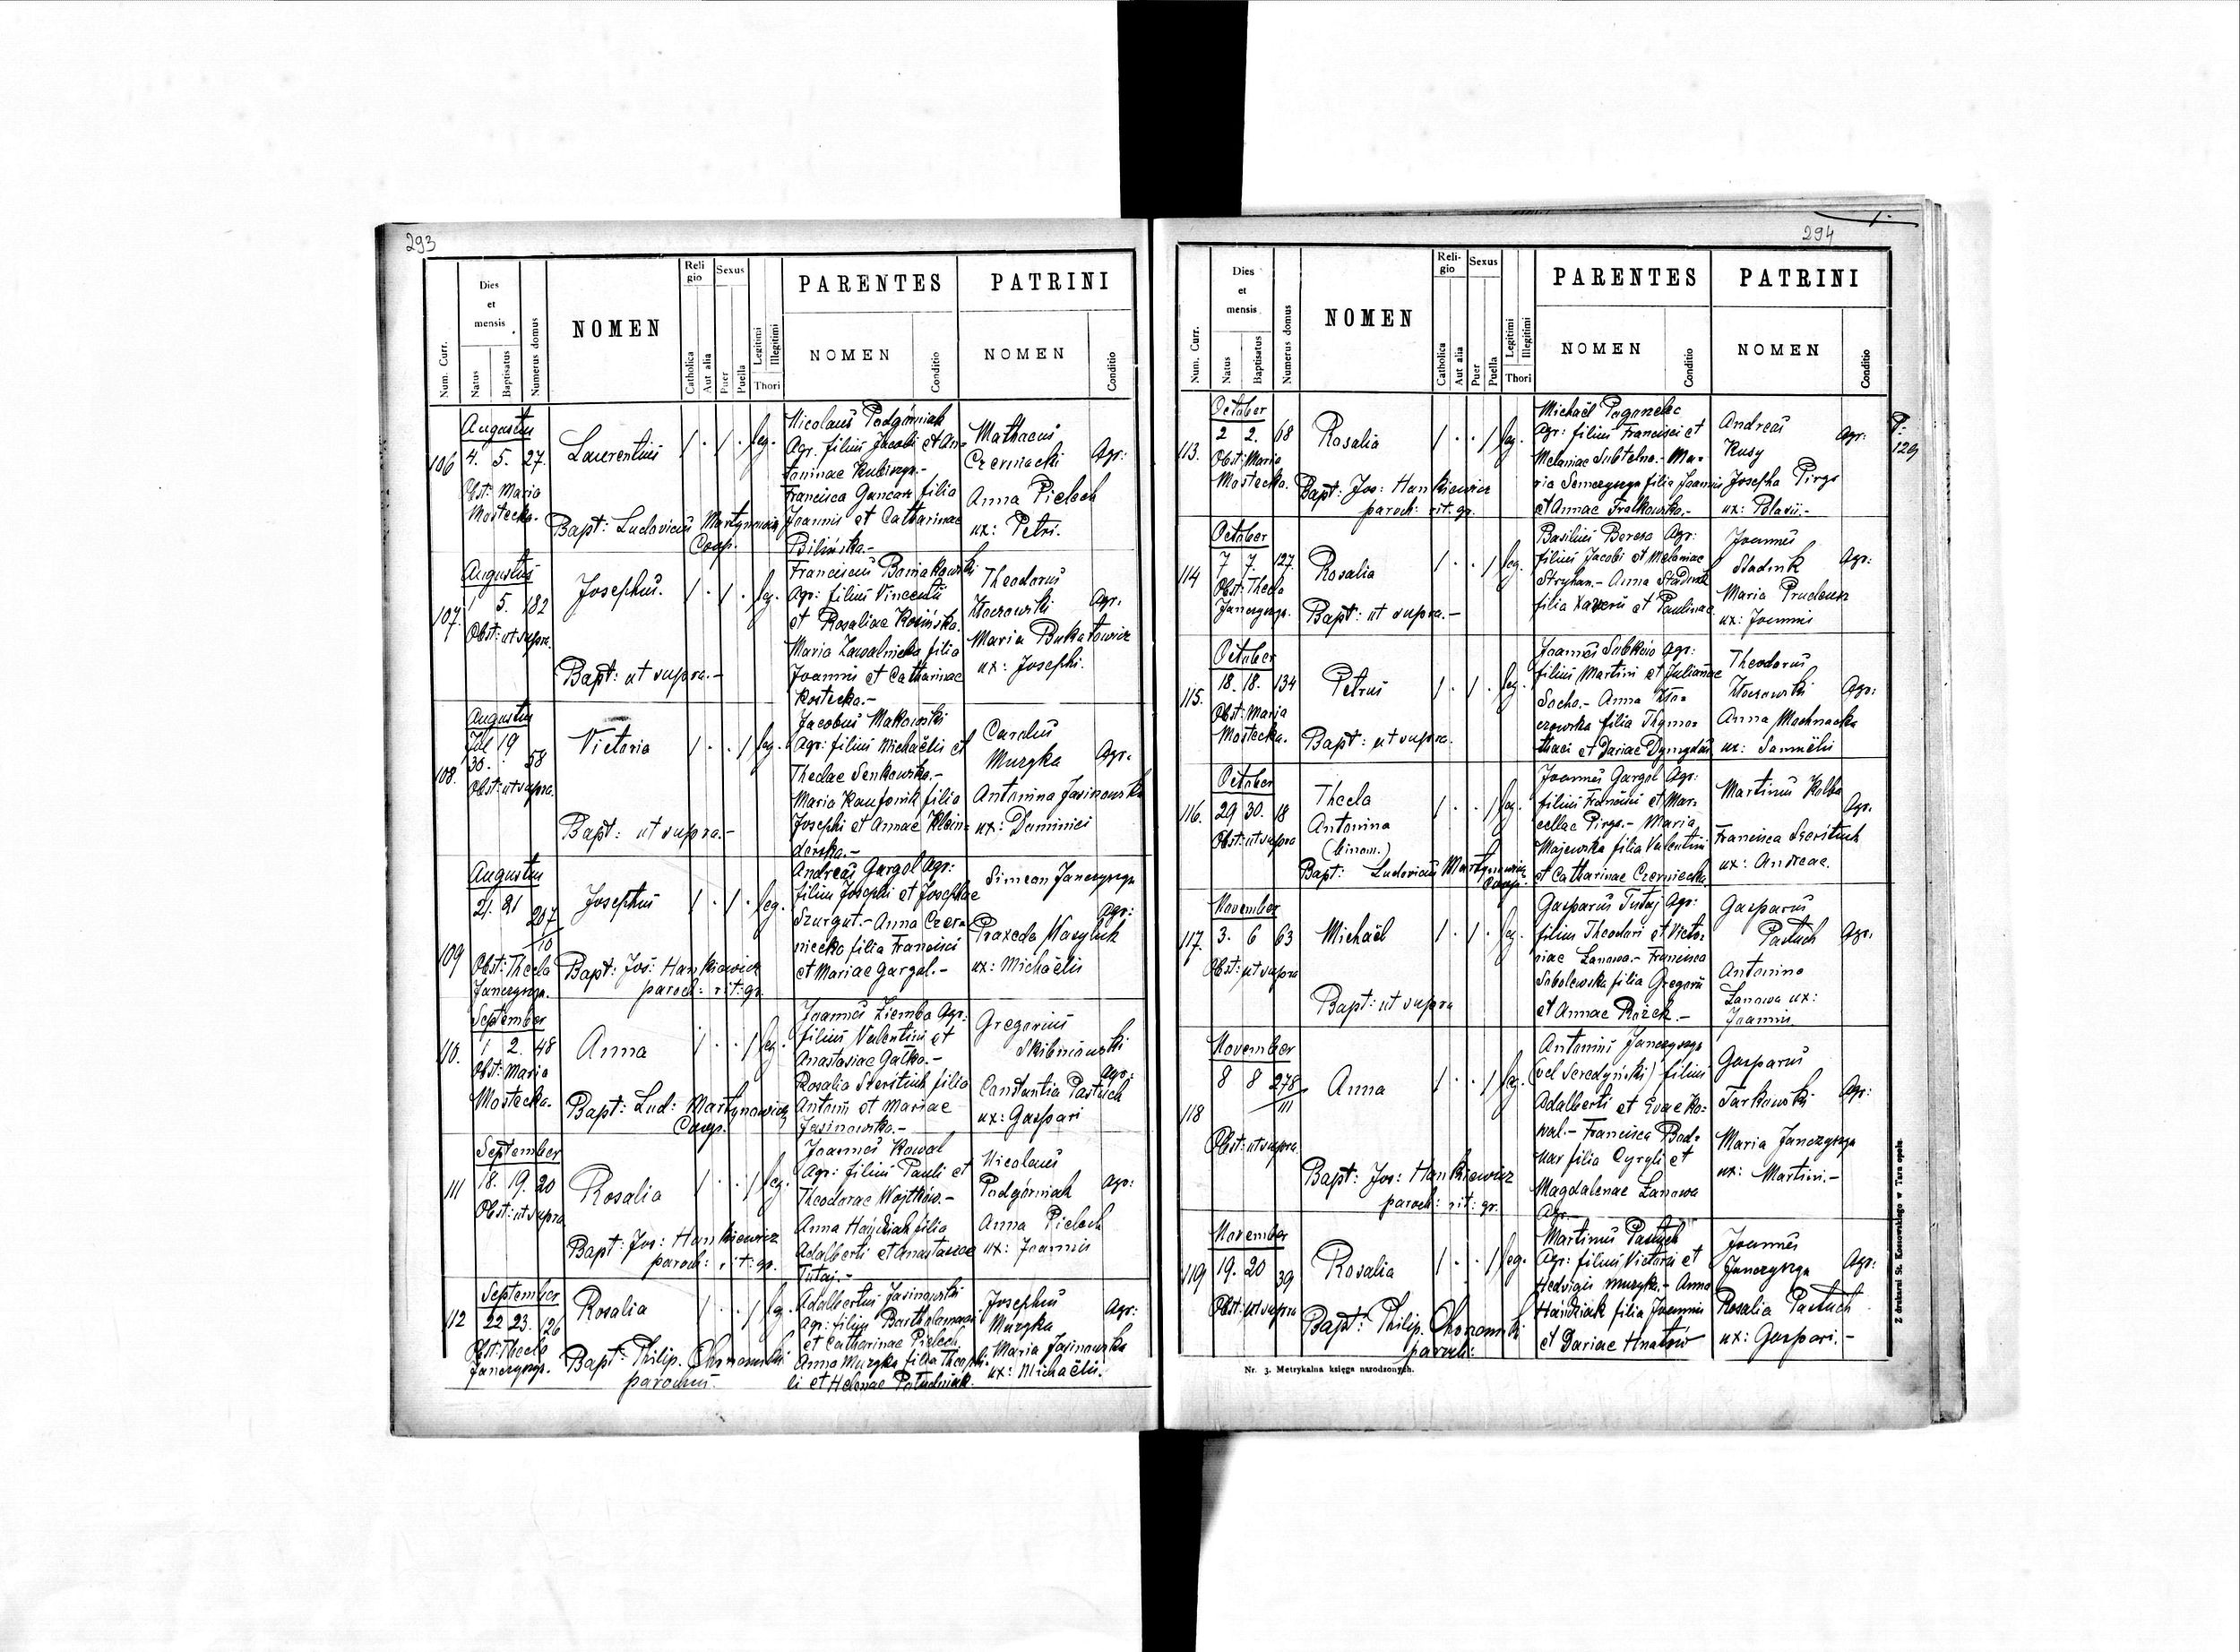 293
Dies
et
mensis
NOMEN
Reli
gio
Sexus
PARENTES
PATRINI
Num. Curr.
Natus
Baptisatus
Numerus domus
Catholica
Aut alia
Puer
Puella
Legitimi
Illegitimi
Thori
NOMEN
Conditio
NOMEN
Conditio
106
Augustus
4. 5. 27.
Obst: Maria
Mostecka.
Laurentius
leg.
Bapt: Ludovicus Martynowicz
Coop.
Nicolaus Podgórniak
Agr. filius Jacobi et An-
toninae Kubiszyn.-
Francisca Gancarz filia
Joannis et Catharinae
Bilińska.-
Mathaeus
Czerniacki
Agr:
Anna Pielech
ux: Petri.
107.
Augustus
1 5. 182
Obst: ut supra.
Josephus.
leg.
Bapt: ut supra.-
Franciscus Boniakowski
Agr: filius Vincentii
et Rosaliae Kosińska.
Maria Zawalnicka filia
Joannis et Catharinae
Kostecka.-
Theodorus
Kłoczowski
Agr.
Maria Bukatowicz
ux: Josephi.
108.
Augustus
Jul 19
30. 58
Obst: ut supra.
Victoria
leg.
Bapt: ut supra.-
Jacobus Makowski
Agr: filius Michaëlis et
Theclae Senkowska.-
Maria filia
Josephi et Annae
Carolus
Muzyka
Agr.
Antonina Jasinowska
ux: Dominici
109
Augustus
21. 21 207
10
Obst: Thecla
Janczyszyn.
Josephus
leg.
Bapt: Jos: Hankiewicz
paroch: rit: gr.
Andreas Gargol Agr:
filius Josephi et Josephae
Szurgot.- Anna Czer-
niecka filia Francisci
et Mariae Gargol.-
Simeon Janczyszyn
Agr:
Praxeda Wasyluk
ux: Michaëlis
110.
September
1 2. 48
Obst: Maria
Mostecka.
Anna
leg.
Bapt: Lud: Martynowicz
Coop.
Joannes Ziemba Agr:
filius Valentini et
Anastasiae Gałka.-
Rosalia Szerstiuk filia
Antonii et Mariae
Jasinowska.-
Gregorius
Skibniowski
Agr:
Constantia Pastuch
ux: Gaspari
111
September
18. 19. 20
Obst: ut supra
Rosalia
leg.
Bapt: Jos: Hankiewicz
paroch: rit: gr.
Joannes Kowal
Agr: filius Pauli et
Theodorae Wojtków.-
Anna Hajdziak filia
Adalberti et Anastasiae
Tutaj.-
Nicolaus
Podgórniak
Agr:
Anna Pielech
ux: Joannis
112
September
22 23. 126
Obst: Thecla
Janczyszyn.
Rosalia
leg.
Bapt: Philip. Chonomski
parochus.
Adalbertus Jasinowski
Agr: filius Bartholomaei
et Catharinae Pielech.
Anna Muzyka filia Theophi-
li et Helenae Południak.
Josephus
Muzyka
Agr:
Maria Jasinowska
ux: Michaëlis.
294
Dies
et
mensis
NOMEN
Reli-
gio
Sexus
PARENTES
PATRINI
Num. Curr.
Natus
Baptisatus
Numerus domus
Catholica
Aut alia
Puer
Puella
Legitimi
Illegitimi
Thori
NOMEN
Conditio
NOMEN
Conditio
113.
October
2 2. 68
Obst: Maria
Mostecka.
Rosalia
leg.
Bapt: Jos: Hankiewicz
paroch: rit: gr.
Michaël Poganelec
Agr: filius Francisci et
Melaniae Subtelna.- Ma-
ria Semczyszyn filia Joannis
et Annae Fralkowska.-
Andreas
Kusy
Agr:
Josepha Pirgo
ux: Polavii.-
129
114
October
7 7. 127.
Obst: Thecla
Janczyszyn.
Rosalia
leg.
Bapt: ut supra.-
Basilius Bereza Agr:
filius Jacobi et Melaniae
Stryhan.- Anna Stadnik
filia Xaverii et Paulinae
Joannes
Stadnik
Agr:
Maria Prudeus
ux: Joannis
115.
October
18. 18. 134
Obst: Maria
Mostecka.
Petrus
leg.
Bapt: ut supra.
Joannes Sabków Agr:
filius Martini et Julianae
Socha.- Anna Kło-
czowska filia Thymo-
thaei et Dariae
Theodorus
Kłoczowski
Agr:
Anna Mochnacka
ux: Samuëlis
116.
October
29 30. 18
Obst: ut supra
Thecla
Antonina
(binom.)
leg.
Bapt: Ludovicus Martynowicz
Coop.
Joannes Gargol Agr:
filius Francisci et Mar-
cellae Pirgo.- Maria
Majewska filia Valentini
et Catharinae Czerniecka.
Martinus Kolba
Agr.
Francisca Szerstiuk
ux: Andreae.
117.
November
3. 6 63
Obst: ut supra
Michaël
leg.
Bapt: ut supra
Gasparus Tutaj Agr:
filius Theodori et Victo-
riae Łanowa.- Francisca
Sobolewska filia Gregorii
et Annae Rożek.-
Gasparus
Pastuch
Agr.
Antonina
Łanowa ux:
Joannis.
118
November
8 8 278
III
Obst: ut supra.
Anna
leg.
Bapt: Jos: Hankiewicz
paroch: rit: gr.
Antonius Janczyszyn
(vel Seredyński) filius
Adalberti et Evae Ko-
wal.- Francisca Bod-
nar filia Cyryli et
Magdalenae Łanowa
Agr.
Gasparus
Tarkowski
Agr:
Maria Janczyszyn
ux: Martini.-
119
November
19. 20 39
Obst: ut supra
Rosalia
leg.
Bapt: Philip. Chonomski
paroch:
Martinus Pastuch
Agr: filius Victoris et
Hedvigis Muzyka.- Anna
Hajdziak filia Joannis
et Dariae Hnatów
Joannes
Janczyszyn
Agr:
Rosalia Pastuch
ux: Gaspari.-
Nr. 3. Metrykalna księga narodzonych.
Z drukarni St. Kossowskiego w Tarnopolu.